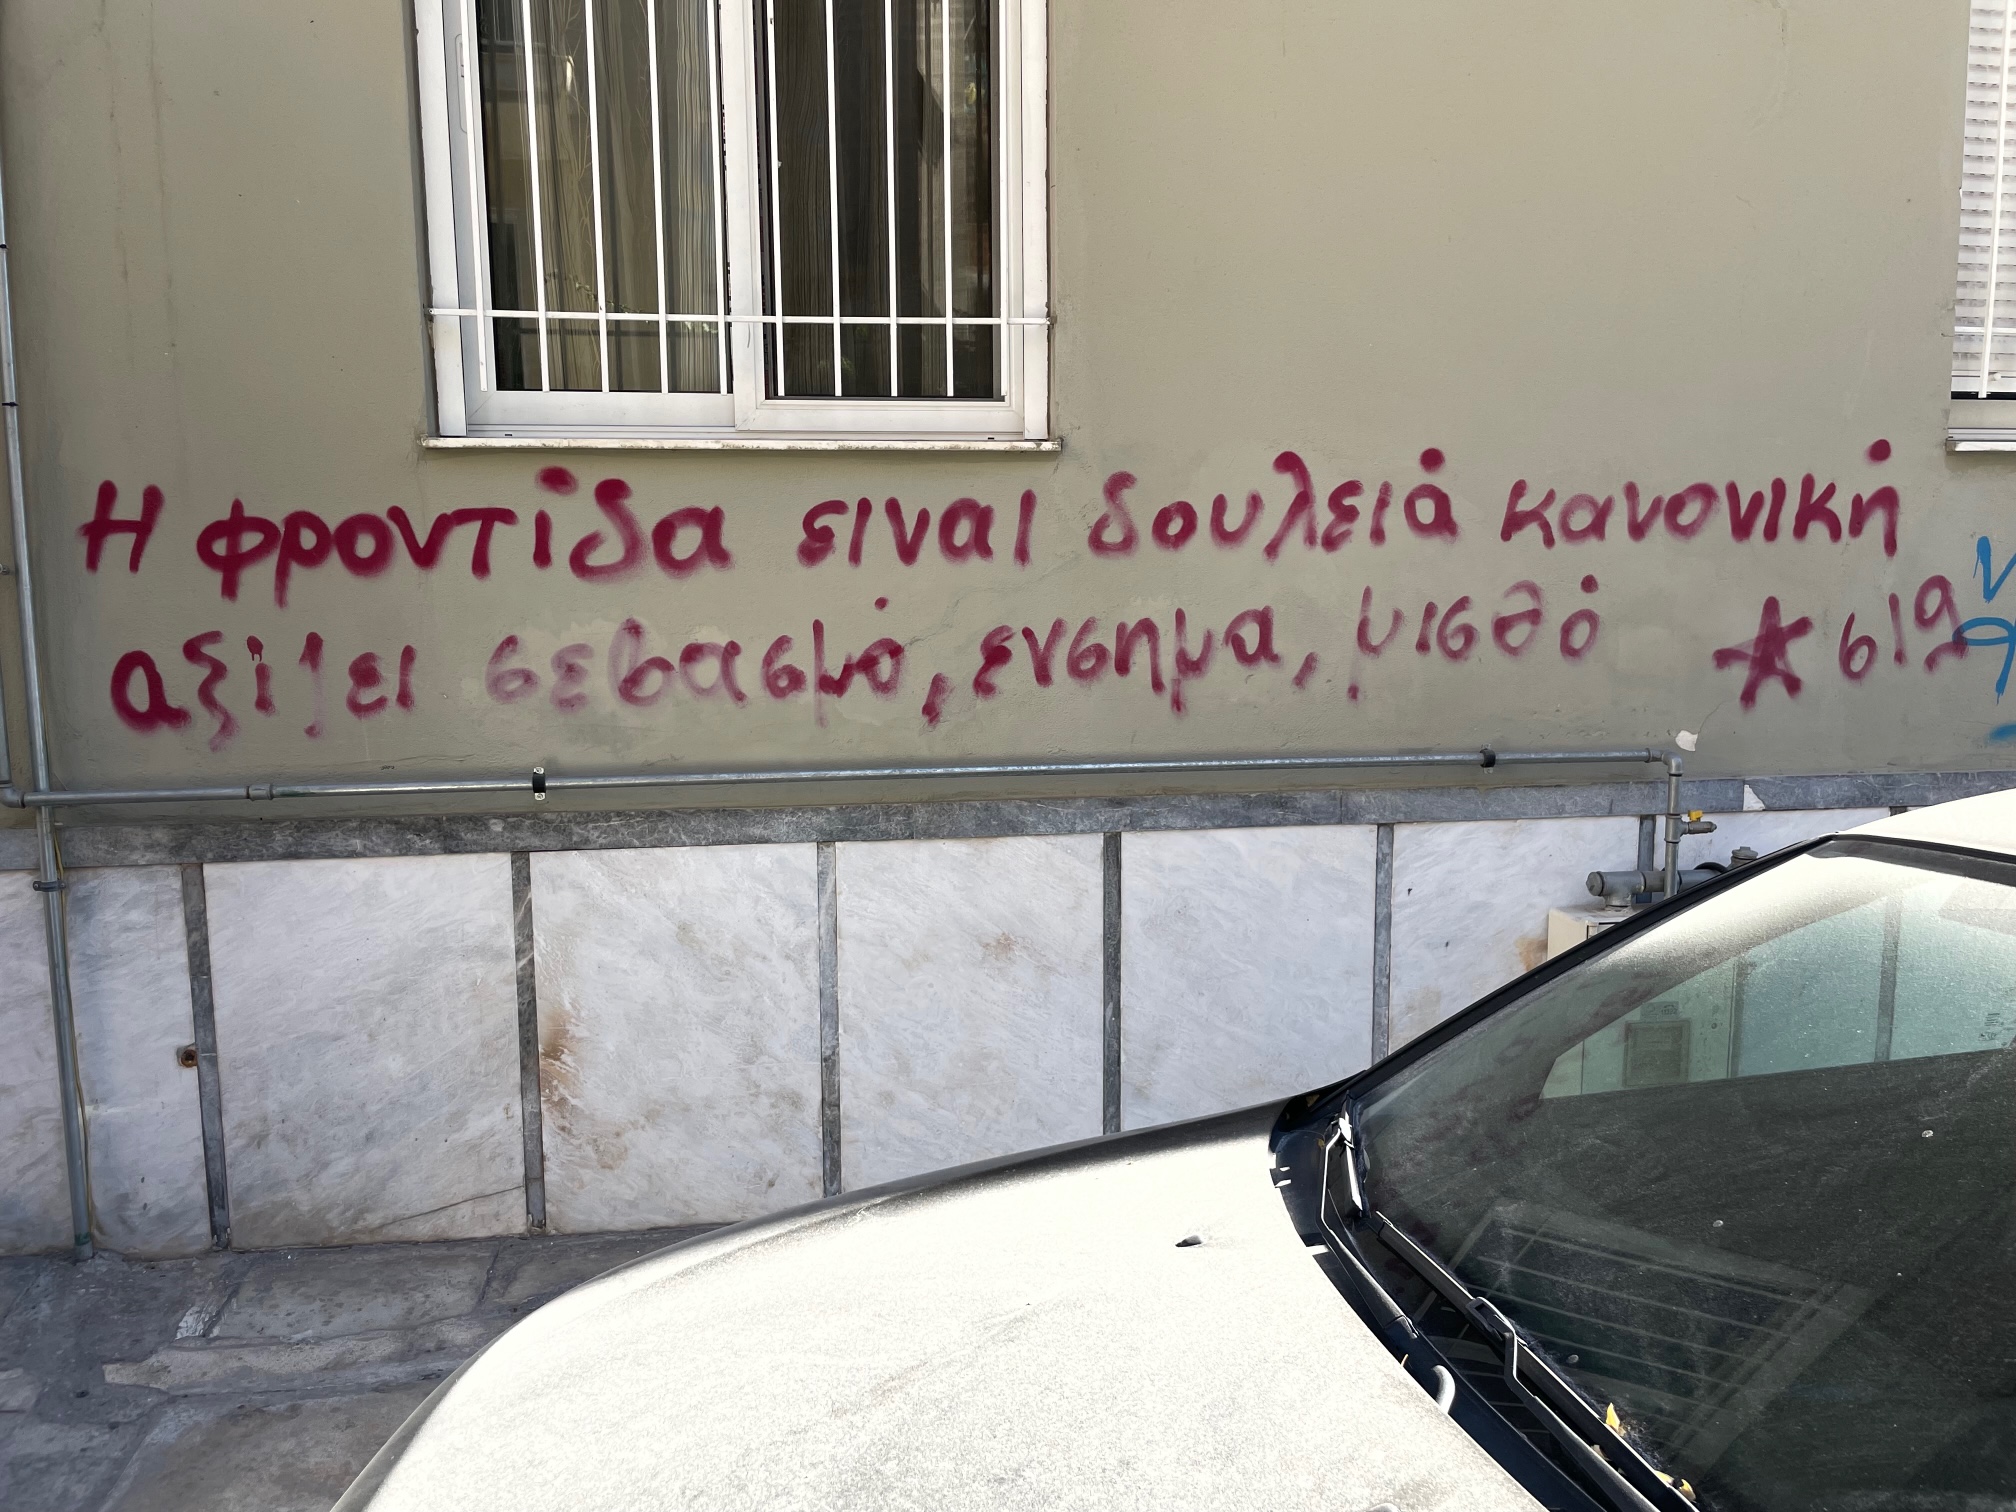 Η φροντίδα ειναι δουλειά κανονική
αξίζει σεβασμό, ενσημα, μισθό